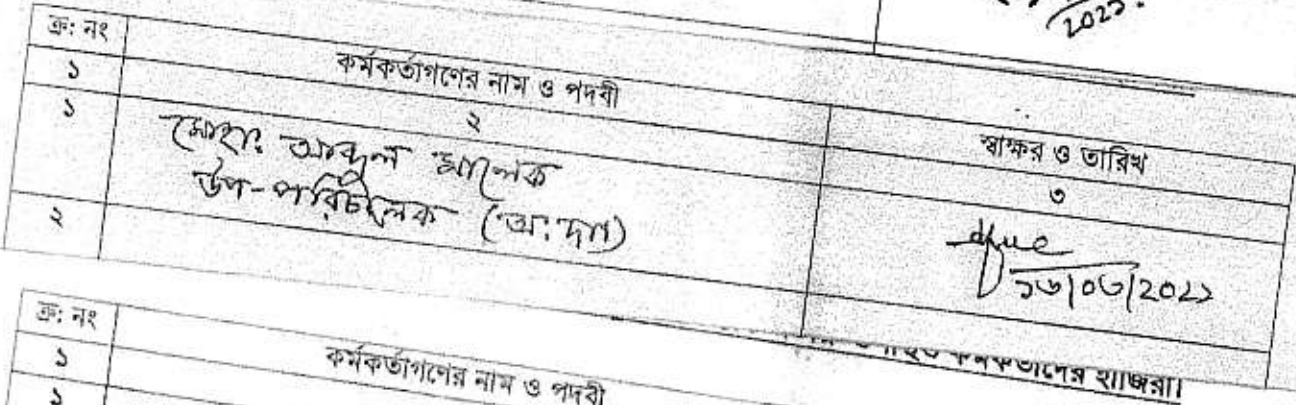 2021.
ক্র: নং
কর্মকর্তাগণের নাম ও পদবী
স্বাক্ষর ও তারিখ
১
২
৩
১
মোহা: আব্দুল মালেক
উপ-পরিচালক (অ:দা)
১৩/০৩/2021
২
কর্মকর্তাদের হাজিরা।
ক্র: নং
কর্মকর্তাগণের নাম ও পদবী
১
১